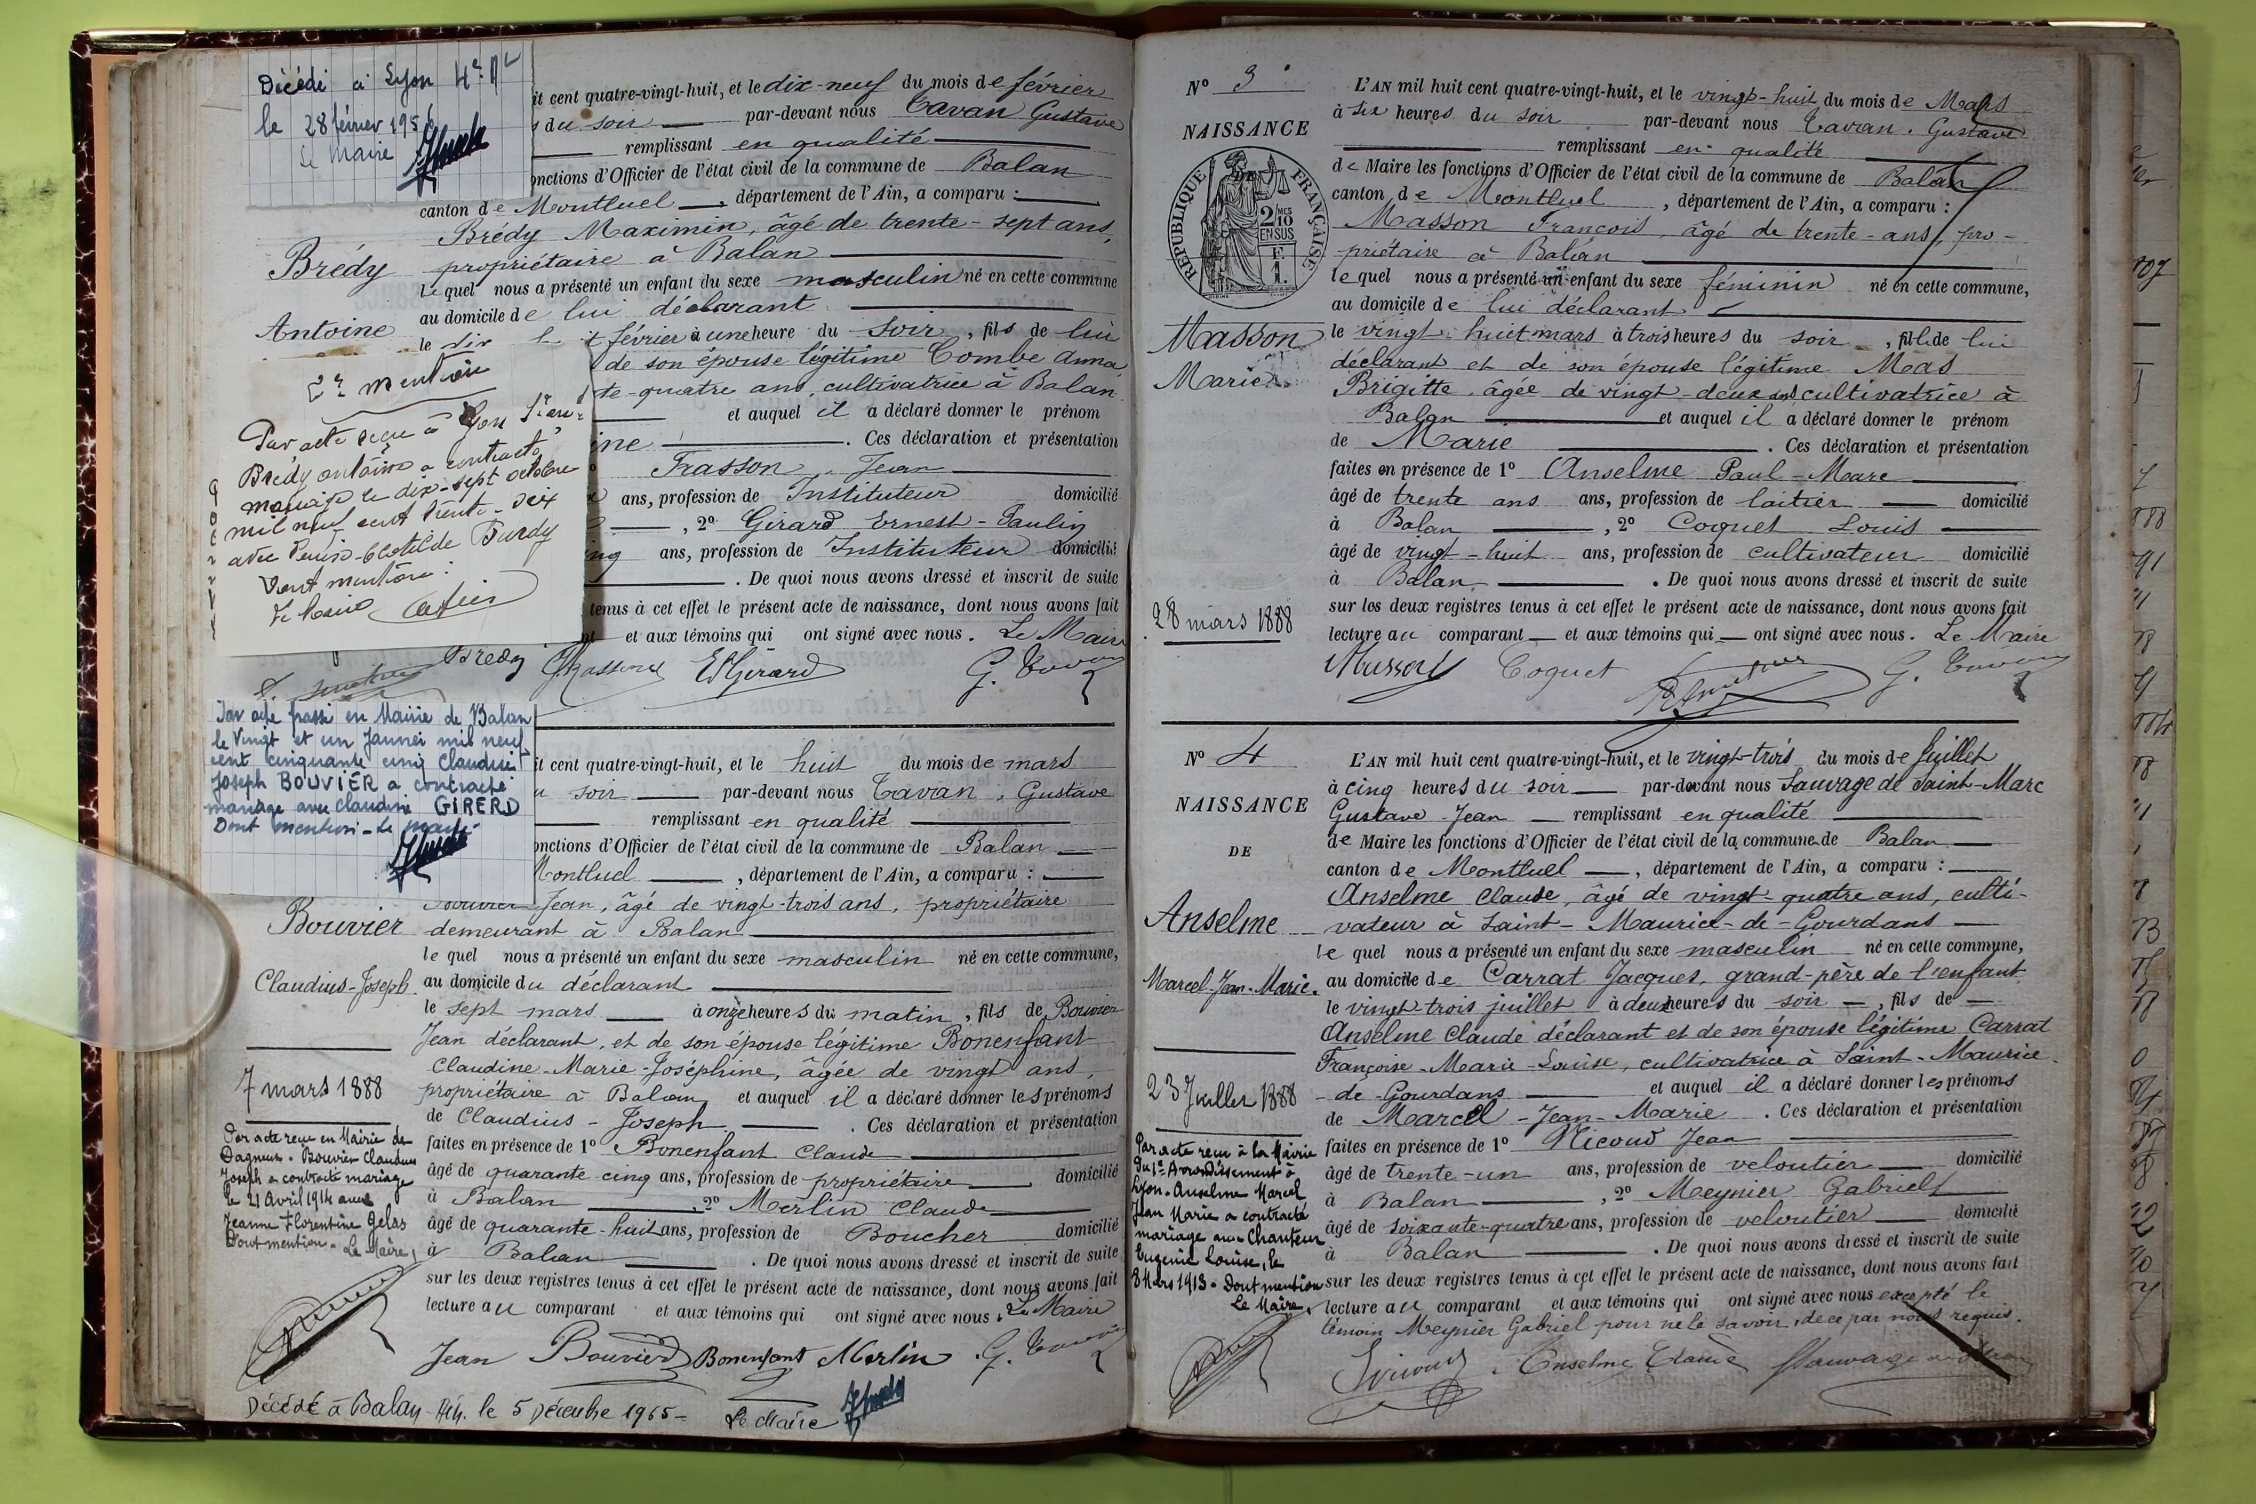 Décédé à Lyon 4e Art
le 28 février 1956
Le Maire
it cent quatre-vingt-huit, et le dix-neuf du mois de février
s du soir par-devant nous Tavan Gustave
remplissant en qualité
onctions d'Officier de l'état civil de la commune de Balan
canton de Montluel, département de l'Ain, a comparu :
Brédy Maximin, âgé de trente-sept ans,
Brédy
propriétaire à Balan
le quel nous a présenté un enfant du sexe masculin né en cette commune
au domicile de lui déclarant
Antoine
le dix février à une heure du soir, fils de lui
de son épouse légitime Combe Anna
te-quatre ans, cultivatrice à Balan
et auquel il a déclaré donner le prénom
ine. Ces déclaration et présentation
Frasson Jean
ans, profession de Instituteur domicilié
, 2o Girard Ernest-Paulin
inq ans, profession de Instituteur domicilié
. De quoi nous avons dressé et inscrit de suite
tenus à cet effet le présent acte de naissance, dont nous avons fait
et aux témoins qui ont signé avec nous. Le Maire
2e mention
Par acte reçu à Lyon 1er arr.
Brédy antoine a contracté
mariage le dix-sept octobre
mil neuf cent trente-six
avec
Dont mention :
Le Maire
Brédy Frasson E Girard G. Tavan
Par acte passé en Mairie de Balan
le Vingt et un Janvier mil neuf
cent cinquante cinq Claudius
Joseph BOUVIER a contracté
mariage avec Claudine GIRERD
Dont mention - Le maire
it cent quatre-vingt-huit, et le huit du mois de mars
u soir par-devant nous Tavan, Gustave
remplissant en qualité
onctions d'Officier de l'état civil de la commune de Balan
Montluel, département de l'Ain, a comparu :
Bouvier Jean, âgé de vingt-trois ans, propriétaire
Bouvier
demeurant à Balan
le quel nous a présenté un enfant du sexe masculin né en cette commune,
Claudius-Joseph
au domicile du déclarant
le sept mars à onze heures du matin, fils de Bouvier
Jean déclarant, et de son épouse légitime Bonenfant
Claudine-Marie-Joséphine, âgée de vingt ans,
7 mars 1888
propriétaire à Balan et auquel il a déclaré donner les prénoms
de Claudius-Joseph. Ces déclaration et présentation
faites en présence de 1o Bonenfant Claude
âgé de quarante cinq ans, profession de propriétaire domicilié
à Balan, 2o Merlin Claude
âgé de quarante-huit ans, profession de Boucher domicilié
à Balan. De quoi nous avons dressé et inscrit de suite
sur les deux registres tenus à cet effet le présent acte de naissance, dont nous avons fait
lecture au comparant et aux témoins qui ont signé avec nous. Le Maire
Par acte reçu en Mairie de
Dagneux. Bouvier Claudius
Joseph a contracté mariage
le 21 Avril 1914 avec
Jeanne Florentine Gelas
Dont mention. Le Maire,
Jean Bouvier Bonenfant Merlin G. Tavan
Décédé à Balan - Ain. le 5 Décembre 1965 - Le Maire
No 3
L'AN mil huit cent quatre-vingt-huit, et le vingt-huit du mois de Mars
à six heures du soir par-devant nous Tavan. Gustave
NAISSANCE
remplissant en qualité
de Maire les fonctions d'Officier de l'état civil de la commune de Balan
canton de Montluel, département de l'Ain, a comparu :
RÉPUBLIQUE FRANÇAISE
2/10 MES EN SUS
F. 1.
Masson François, âgé de trente-ans, pro-
priétaire à Balan
le quel nous a présenté un enfant du sexe féminin né en cette commune,
au domicile de lui déclarant
Masson
Marie
le vingt huit mars à trois heures du soir, fille de lui
déclarant et de son épouse légitime Mas
Brigitte, âgée de vingt-deux ans cultivatrice à
Balan et auquel il a déclaré donner le prénom
de Marie. Ces déclaration et présentation
faites en présence de 1o Anselme Paul-Marc
âgé de trente ans ans, profession de laitier domicilié
à Balan, 2o Coquet Louis
âgé de vingt-huit ans, profession de cultivateur domicilié
à Balan. De quoi nous avons dressé et inscrit de suite
28 mars 1888
sur les deux registres tenus à cet effet le présent acte de naissance, dont nous avons fait
lecture au comparant et aux témoins qui ont signé avec nous. Le Maire
Masson Coquet G. Tavan
No 4
L'AN mil huit cent quatre-vingt-huit, et le vingt-trois du mois de Juillet
à cinq heures du soir par-devant nous Sauvage de Saint-Marc
NAISSANCE
Gustave Jean remplissant en qualité
DE
de Maire les fonctions d'Officier de l'état civil de la commune de Balan
canton de Montluel, département de l'Ain, a comparu :
Anselme Claude, âgé de vingt-quatre ans, culti-
Anselme
vateur à Saint-Maurice-de-Gourdans
le quel nous a présenté un enfant du sexe masculin né en cette commune,
Marcel-Jean-Marie.
au domicile de Carrat Jacques, grand-père de l'enfant
le vingt-trois juillet à deux heures du soir, fils de
Anselme Claude déclarant et de son épouse légitime Carrat
Françoise-Marie-Louise, cultivatrice à Saint-Maurice-
23 Juillet 1888
-de-Gourdans et auquel il a déclaré donner les prénoms
de Marcel-Jean-Marie. Ces déclaration et présentation
faites en présence de 1o Nicoud Jean
âgé de trente-un ans, profession de veloutier domicilié
à Balan, 2o Meynier Gabriel
âgé de soixante-quatre ans, profession de veloutier domicilié
à Balan. De quoi nous avons dressé et inscrit de suite
sur les deux registres tenus à cet effet le présent acte de naissance, dont nous avons fait
lecture au comparant et aux témoins qui ont signé avec nous excepté le
témoin Meynier Gabriel pour ne le savoir, de ce par nous requis.
Par acte reçu à la Mairie
du 1er Arrondissement à
Lyon. Anselme Marcel
Jean Marie a contracté
mariage avec Chanteur
Eugénie Louise, le
8 Mars 1913. Dont mention
Le Maire,
Nicoud Anselme Claude Sauvage de St Marc